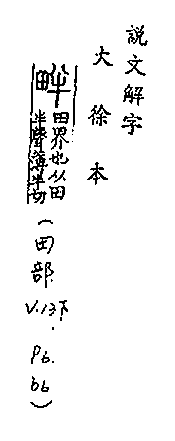 說文解字
大徐本
畔 田界也从田
半聲薄半切
(田部. V.13下. P6. b6)